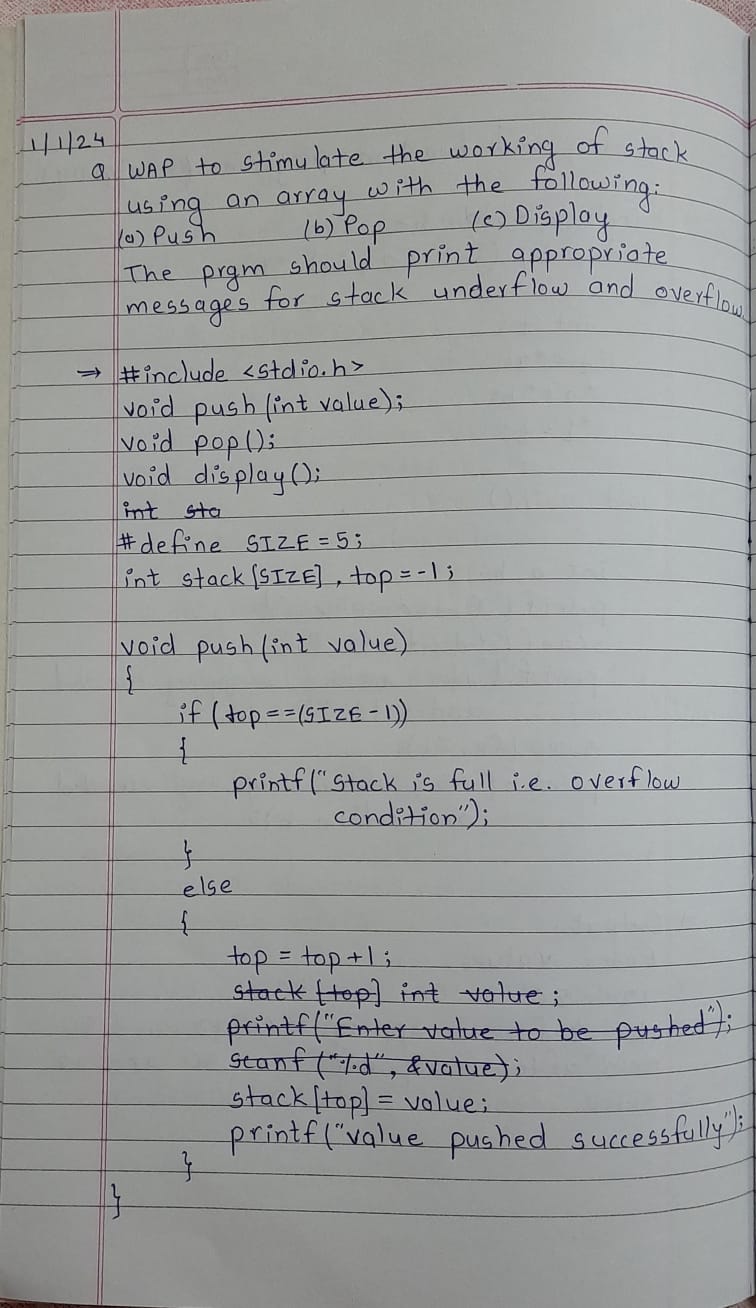 1/1/24
Q WAP to stimulate the working of stack
using an array with the following:
(a) Push (b) Pop (c) Display
The prgm should print appropriate
messages for stack underflow and overflow.
⇒ #include <stdio.h>
void push(int value);
void pop();
void display();
int sta
#define SIZE = 5;
int stack[SIZE], top = -1;
void push(int value)
{
if (top==(SIZE-1))
{
printf("Stack is full i.e. overflow
condition");
}
else
{
top = top+1;
stack [top] int value;
printf("Enter value to be pushed");
scanf("%d", &value);
stack[top] = value;
printf("value pushed successfully");
}
}